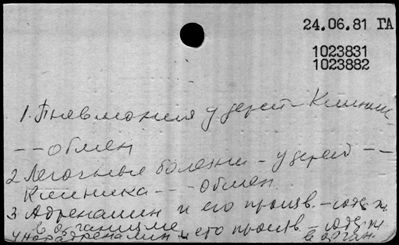 24.06.81 ГА
1023831
1023882
1. Пневмония у детей - Клиника
-- обмен
2 Легочные болезни - у детей --
Клиника -- обмен.
3 Адреналин и его произв. -
в организме
4 Норадреналин и его произв -
в орган